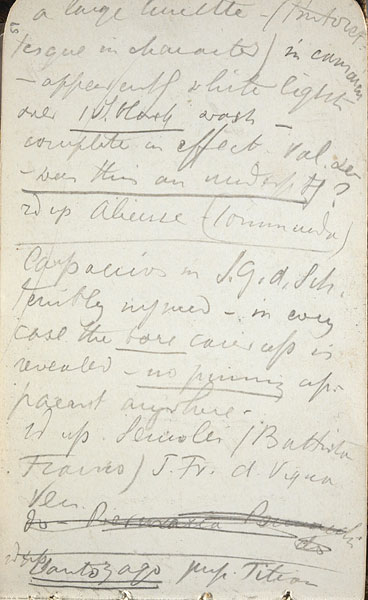 a large lunette - (Tintoret-
tesque in character) in camaieu
- apparently white lights
over I. black wash -
complete in effect. Val. 
- was this an underptg?
Aliense (Commenda)
Carpaccios in S. G. d. Sch.
terribly injured - in every
case the bare canvas is
revealed - no priming ap-
parent anywhere.
Semolei (Battista
Franco) S. Fr. d. Vigna
Ven.
do -
do
pup. Titian